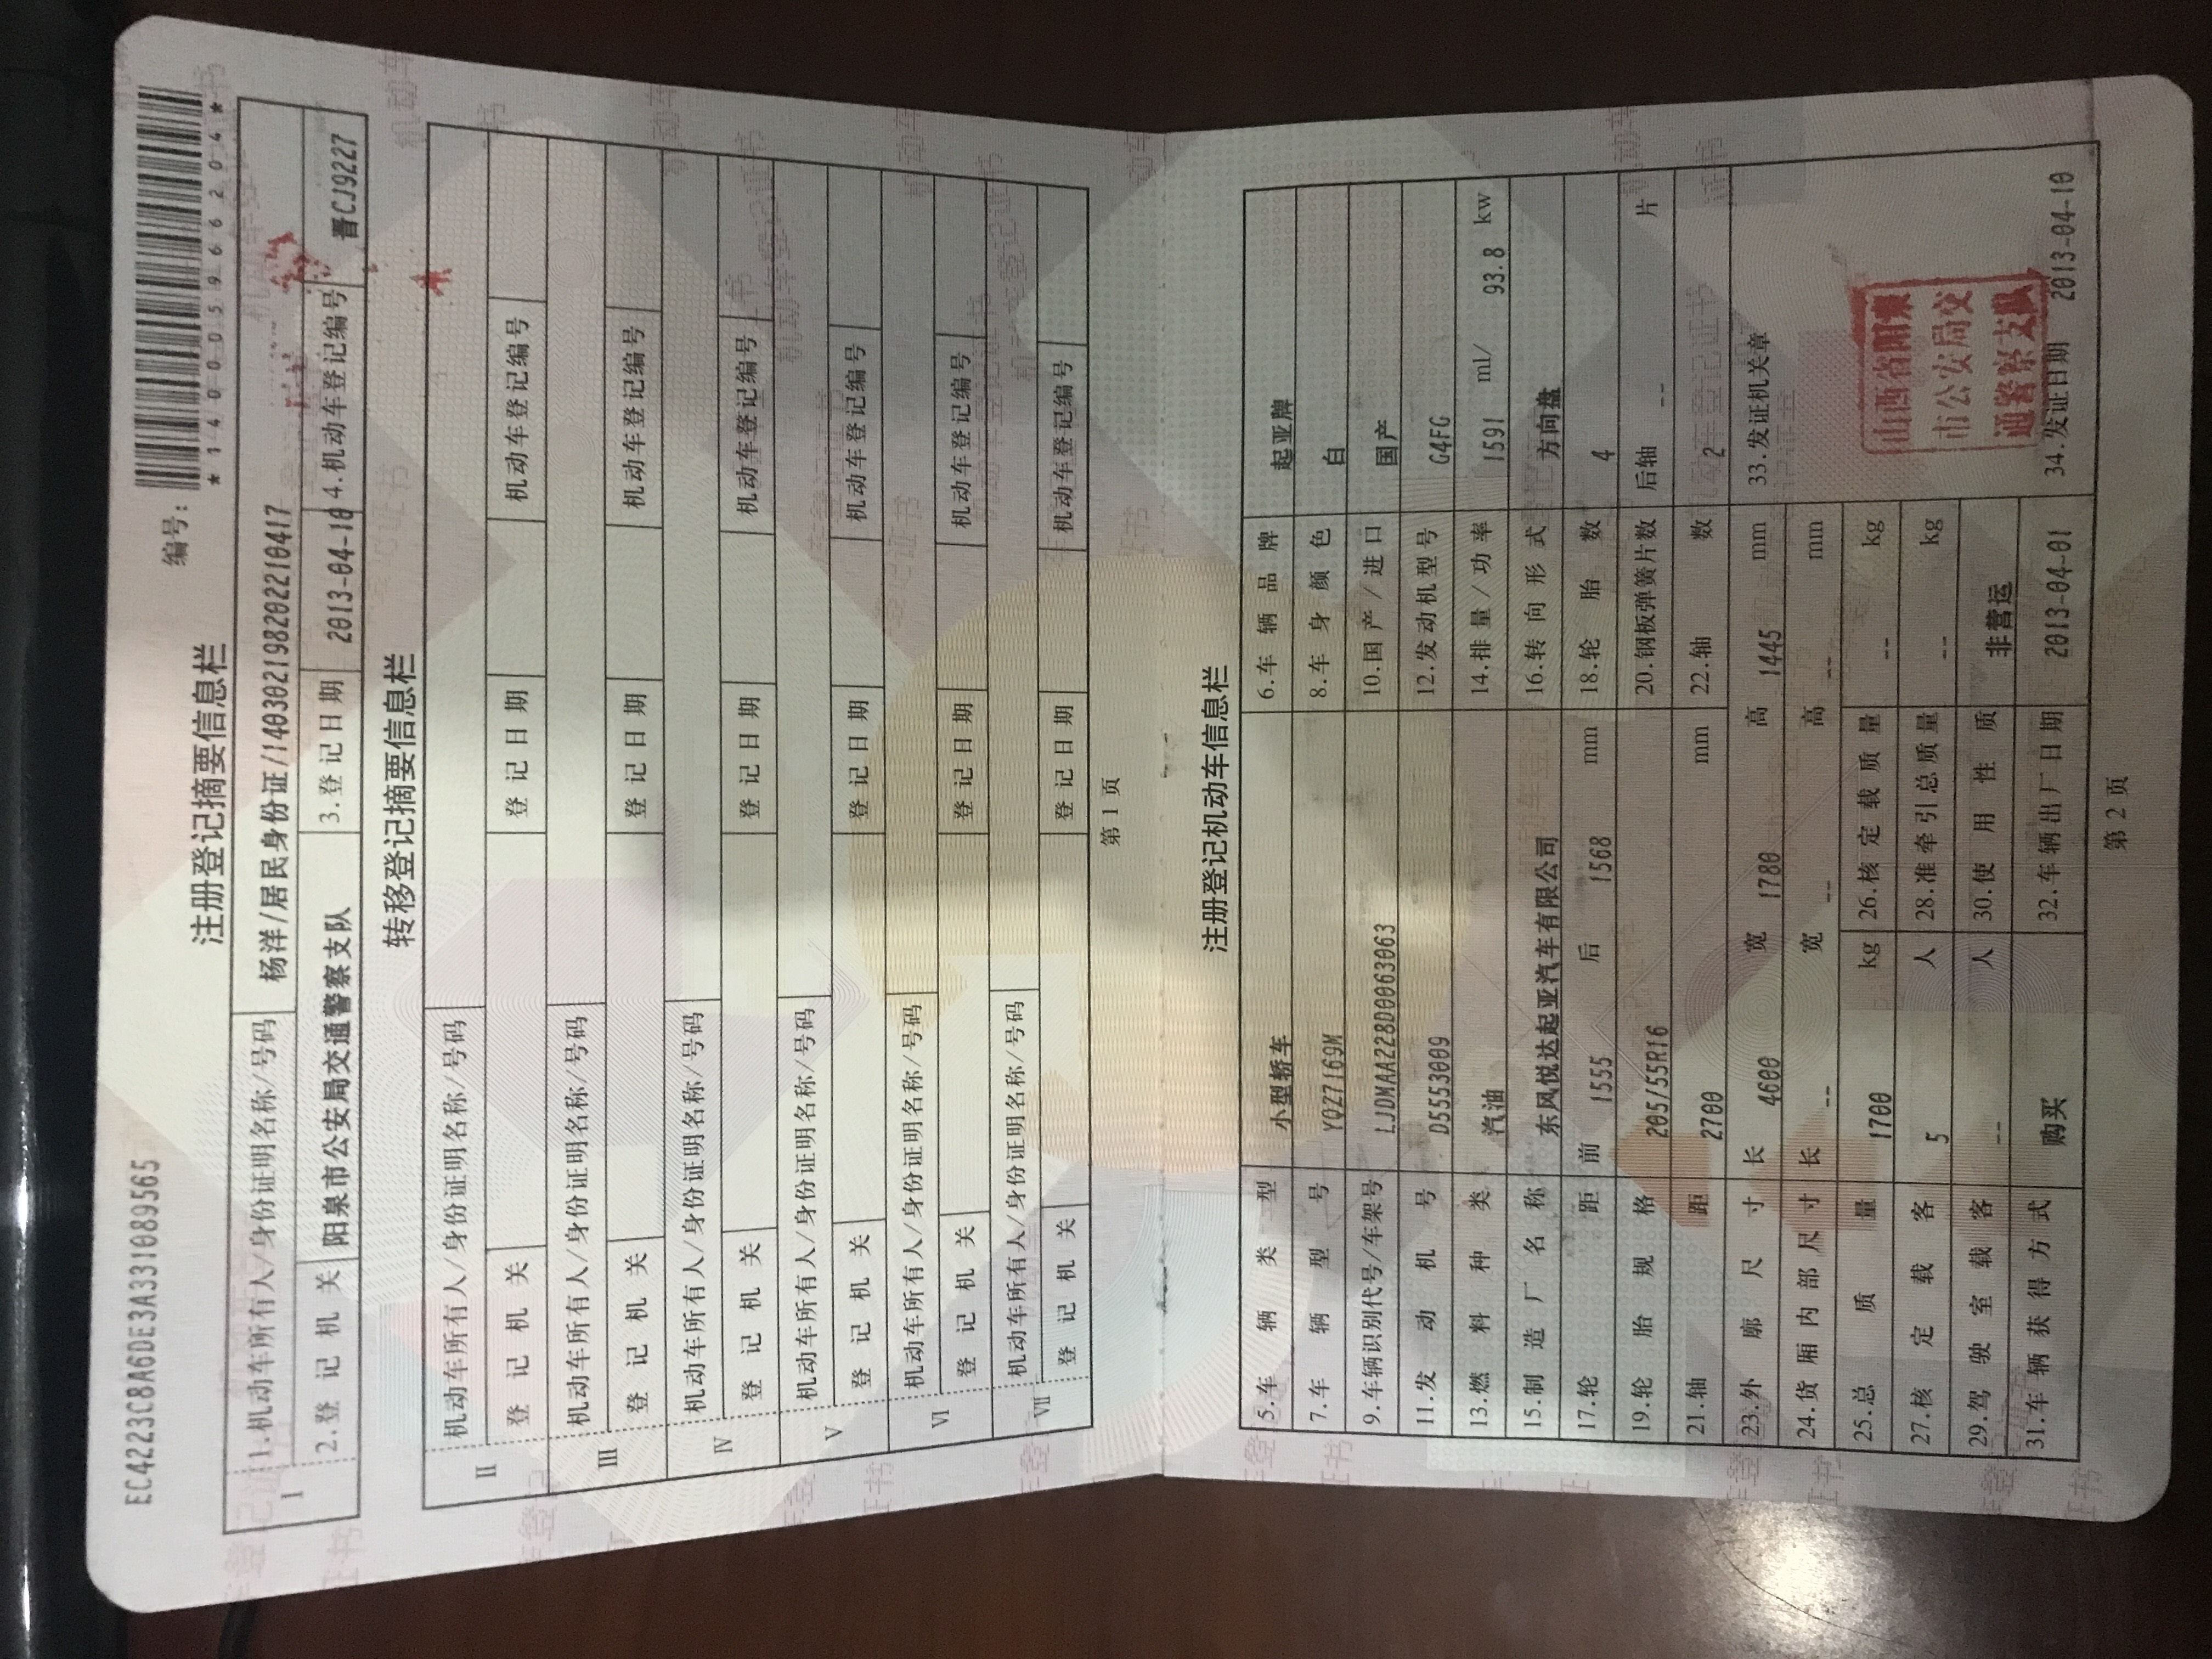 EC4223C8A6DE3A331089565
编号:
*140005966204*
注册登记摘要信息栏
I 1.机动车所有人/身份证明名称/号码 杨洋/居民身份证/140302198202210417
2.登记机关 阳泉市公安局交通警察支队 3.登记日期 2013-04-10 4.机动车登记编号 晋CJ9227
转移登记摘要信息栏
II 机动车所有人/身份证明名称/号码
登记机关 登记日期 机动车登记编号
III 机动车所有人/身份证明名称/号码
登记机关 登记日期 机动车登记编号
IV 机动车所有人/身份证明名称/号码
登记机关 登记日期 机动车登记编号
V 机动车所有人/身份证明名称/号码
登记机关 登记日期 机动车登记编号
VI 机动车所有人/身份证明名称/号码
登记机关 登记日期 机动车登记编号
VII 机动车所有人/身份证明名称/号码
登记机关 登记日期 机动车登记编号
第1页
注册登记机动车信息栏
5.车辆类型 小型轿车 6.车辆品牌 起亚牌
7.车辆型号 YQZ7169M 8.车身颜色 白
9.车辆识别代号/车架号 LJDMAA228D0063063 10.国产/进口 国产
11.发动机号 D5553009 12.发动机型号 G4FG
13.燃料种类 汽油 14.排量/功率 1591 ml/ 93.8 kw
15.制造厂名称 东风悦达起亚汽车有限公司 16.转向形式 方向盘
17.轮距 前 1555 后 1568 mm 18.轮胎数 4
19.轮胎规格 205/55R16 20.钢板弹簧片数 后轴 -- 片
21.轴距 2700 mm 22.轴数 2
23.外廓尺寸 长 4600 宽 1780 高 1445 mm 33.发证机关章
24.货厢内部尺寸 长 -- 宽 -- 高 -- mm
25.总质量 1700 kg 26.核定载质量 -- kg
27.核定载客 5 人 28.准牵引总质量 -- kg
29.驾驶室载客 -- 人 30.使用性质 非营运
31.车辆获得方式 购买 32.车辆出厂日期 2013-04-01 34.发证日期 2013-04-10
山西省阳泉
市公安局交
通警察支队
第2页